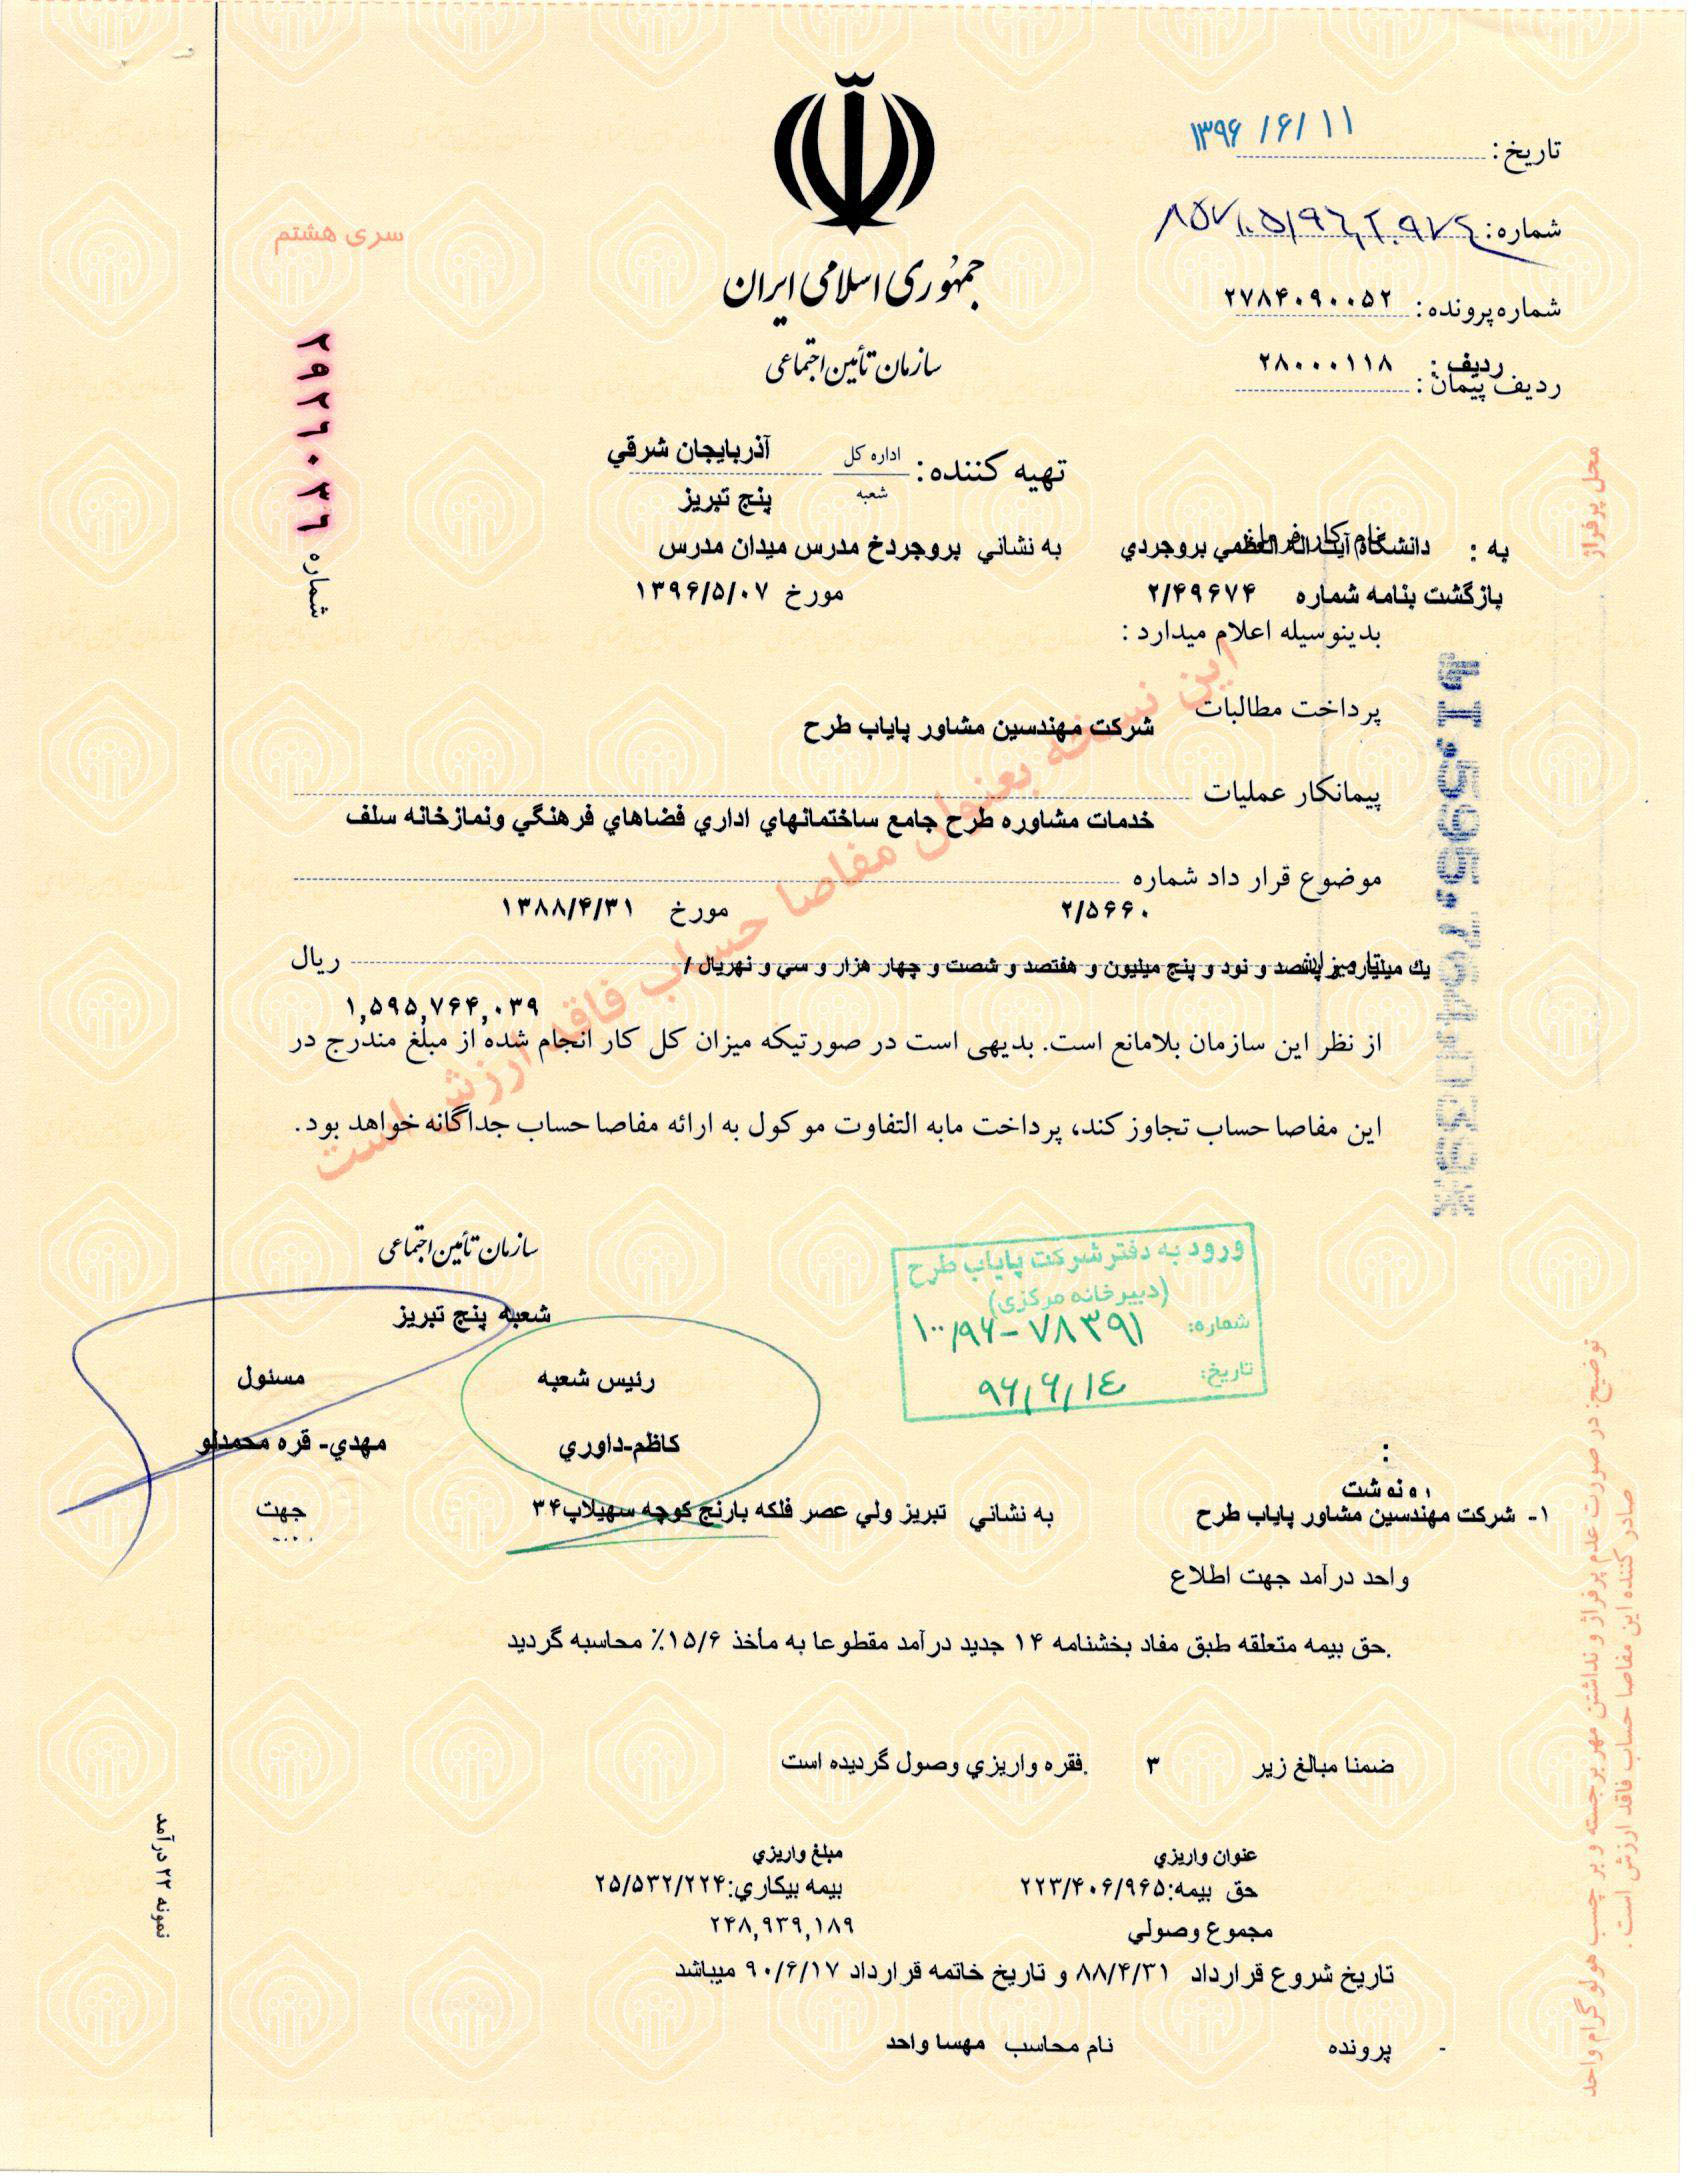 تاریخ: ۱۳۹۶/۶/۱۱
شماره:
شماره پرونده: ۲۷۸۴۰۹۰۰۵۲
ردیف: ۲۸۰۰۰۱۱۸
ردیف پیمان:
جمهوری اسلامی ایران
سازمان تأمین اجتماعی
سری هشتم
شماره ۲۹۲۶۰۳۶
تهیه کننده: اداره کل آذربایجان شرقي
شعبه پنج تبریز
محل پرفراژ
به : دانشگاه آیت اله العظمي بروجردي به نشاني بروجردخ مدرس میدان مدرس
بازگشت بنامه شماره ۲/۴۹۶۷۴ مورخ ۱۳۹۶/۵/۰۷
بدینوسیله اعلام میدارد :
پرداخت مطالبات شرکت مهندسین مشاور پایاب طرح
پیمانکار عملیات
خدمات مشاوره طرح جامع ساختمانهاي اداري فضاهاي فرهنگي ونمازخانه سلف
موضوع قرار داد شماره
۲/۵۶۶۰ مورخ ۱۳۸۸/۴/۳۱
یك میلیارد و پانصد و نود و پنج میلیون و هفتصد و شصت و چهار هزار و سي و نهریال / ریال
۱,۵۹۵,۷۶۴,۰۳۹
از نظر این سازمان بلامانع است. بدیهی است در صورتیکه میزان کل کار انجام شده از مبلغ مندرج در
این مفاصا حساب تجاوز کند، پرداخت مابه التفاوت موکول به ارائه مفاصا حساب جداگانه خواهد بود.
این نسخه بعنوان مفاصا حساب فاقد ارزش است
سازمان تأمین اجتماعی
شعبه پنج تبریز
رئیس شعبه
مسئول
کاظم-داوري
مهدي- قره محمدلو
ورود به دفتر شرکت پایاب طرح
(دبیرخانه مرکزی)
شماره: ۱۰۰/۹۶-۷۸۳۹۱
تاریخ: ۹۶/۶/۱٤
:
رونوشت
۱- شرکت مهندسین مشاور پایاب طرح به نشاني تبریز ولي عصر فلکه بارنج کوچه سهیلاپ۳۴ جهت
واحد درآمد جهت اطلاع
.حق بیمه متعلقه طبق مفاد بخشنامه ۱۴ جدید درآمد مقطوعا به مأخذ ۱۵/۶٪ محاسبه گردید
ضمنا مبالغ زیر ۳ .فقره واریزي وصول گردیده است
عنوان واریزي مبلغ واریزي
حق بیمه:۲۲۳/۴۰۶/۹۶۵ بیمه بیکاري:۲۵/۵۳۲/۲۲۴
مجموع وصولي ۲۴۸,۹۳۹,۱۸۹
تاریخ شروع قرارداد ۸۸/۴/۳۱ و تاریخ خاتمه قرارداد ۹۰/۶/۱۷ میباشد
- پرونده نام محاسب مهسا واحد
نمونه ۲۲ درآمد
توضیح: در صورت عدم پرفراژ و نداشتن مهر برجسته و بر چسب هولوگرام واحد
صادر کننده این مفاصا حساب فاقد ارزش است .